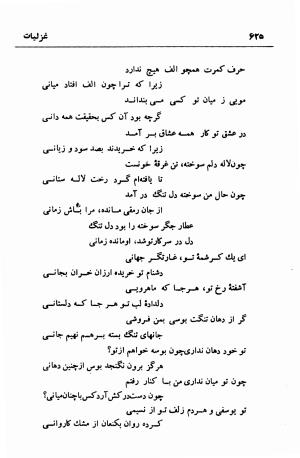 ۶۲۵
غزلیات
حرف کمرت همچو الف هیچ ندارد
زیرا که ترا چون الف افتاد میانی
مویی ز میان تو کسی می بنداند
گرچه بود آن کس بحقیقت همه دانی
در عشق تو کار همه عشاق بر آمد
زیرا که خریدند بصد سود و زیانی
چون لاله دلم سوخته، تن غرقهٔ خونست
تا یافته‌ام گرد رخت لاله ستانی
چون حال من سوخته دل تنگ در آمد
از جان رمقی مانده، مرا باش زمانی
عطار جگر سوخته را بود دل تنگ
دل در سر کار تو شد، او مانده زمانی
ای یک کرشمهٔ تو، غارتگر جهانی
دشنام تو خریده ارزان خران بجانی
آشفتهٔ رخ تو، هر جا که ماهرویی
دلدادهٔ لب تو هر جا که دلستانی
گر از دهان تنگت بوسی بمن فروشی
جانهای تنگ بسته برهم نهیم جانی
تو خود دهان نداری چون بوسه خواهم از تو؟
هرگز برون نگنجد بوس از چنین دهانی
چون تو میان نداری من با کنار رفتم
چون دست درکش آرد کس با چنان میانی؟
تو یوسفی و هردم زلف تو از نسیمی
کرده روان بکنعان از مشک کاروانی